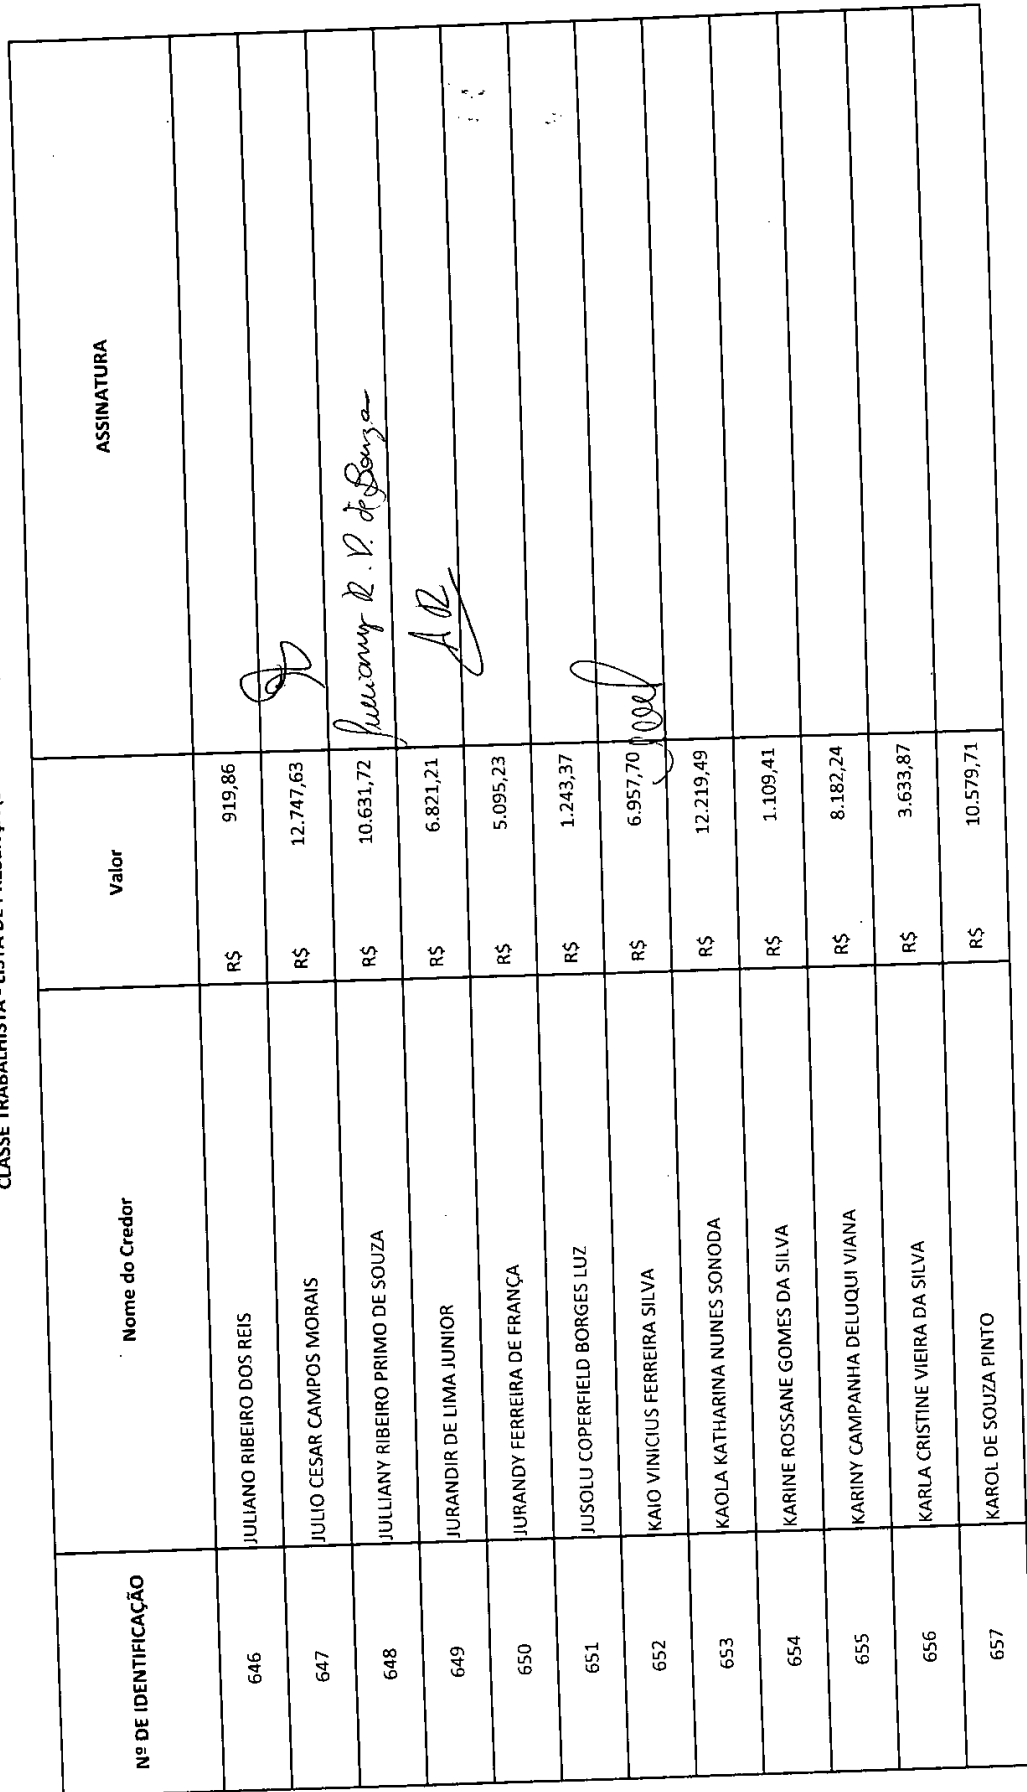 CLASSE TRABALHISTA - LISTA DE PRESENÇA
Nº DE IDENTIFICAÇÃO Nome do Credor Valor ASSINATURA
646 JULIANO RIBEIRO DOS REIS R$ 919,86
647 JULIO CESAR CAMPOS MORAIS R$ 12.747,63
648 JULLIANY RIBEIRO PRIMO DE SOUZA R$ 10.631,72 Julliany R. P. de Souza
649 JURANDIR DE LIMA JUNIOR R$ 6.821,21
650 JURANDY FERREIRA DE FRANÇA R$ 5.095,23
651 JUSOLU COPERFIELD BORGES LUZ R$ 1.243,37
652 KAIO VINICIUS FERREIRA SILVA R$ 6.957,70
653 KAOLA KATHARINA NUNES SONODA R$ 12.219,49
654 KARINE ROSSANE GOMES DA SILVA R$ 1.109,41
655 KARINY CAMPANHA DELUQUI VIANA R$ 8.182,24
656 KARLA CRISTINE VIEIRA DA SILVA R$ 3.633,87
657 KAROL DE SOUZA PINTO R$ 10.579,71